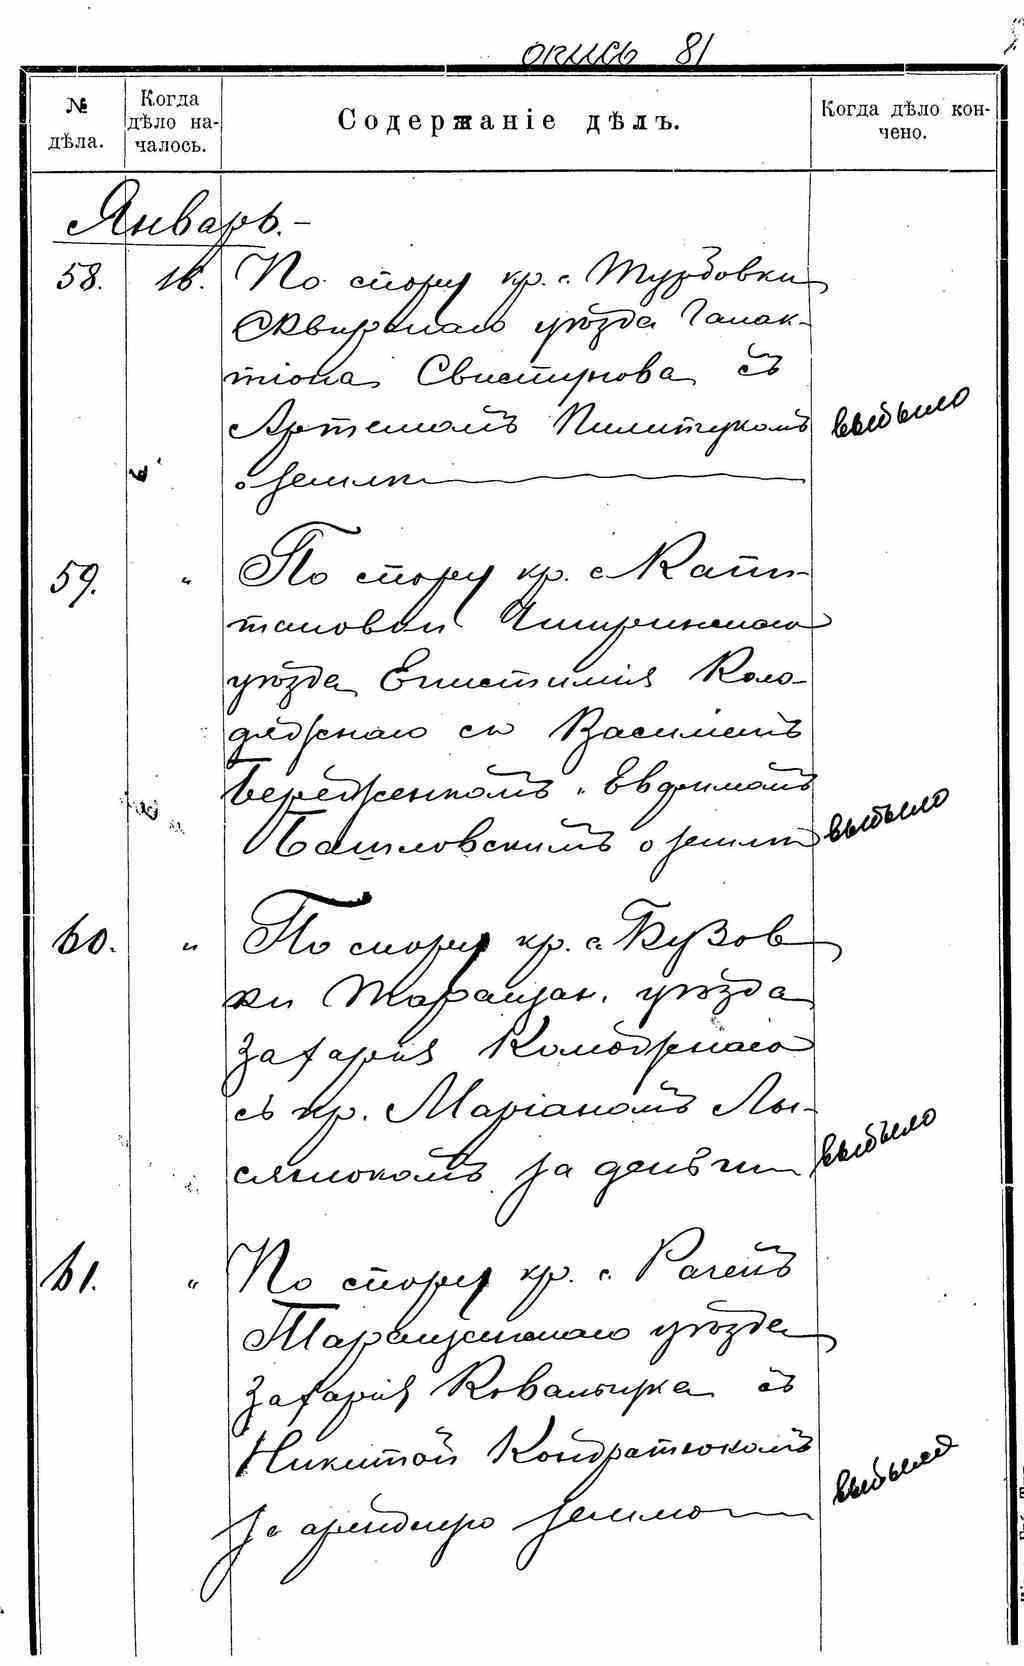 опись 81
№ дѣла.
Когда дѣло началось.
Содержаніе дѣлъ.
Когда дѣло кончено.
Январь.-
58. 16. По спору кр. с. Турбовки
Сквирскаго уѣзда Галак-
тіона Свистунова съ
Артемомъ Пилипчукомъ
о землѣ
выбыло
59. " По спору кр. с. Капи-
тановки Чигиринскаго
уѣзда Евистимія Коло-
дяжнаго съ Василіемъ
Береженкомъ и Евфимомъ
о землѣ
выбыло
60. " По спору кр. с. Бузов
ки Таращан. уѣзда
Захарія
съ кр. Маріаномъ Лы-
сянюкомъ за деньги
выбыло
61. " По спору кр. с.
Таращанскаго уѣзда
Захарія Ковальчука съ
Никитой Кондратюкомъ
за арендную землю
выбыло